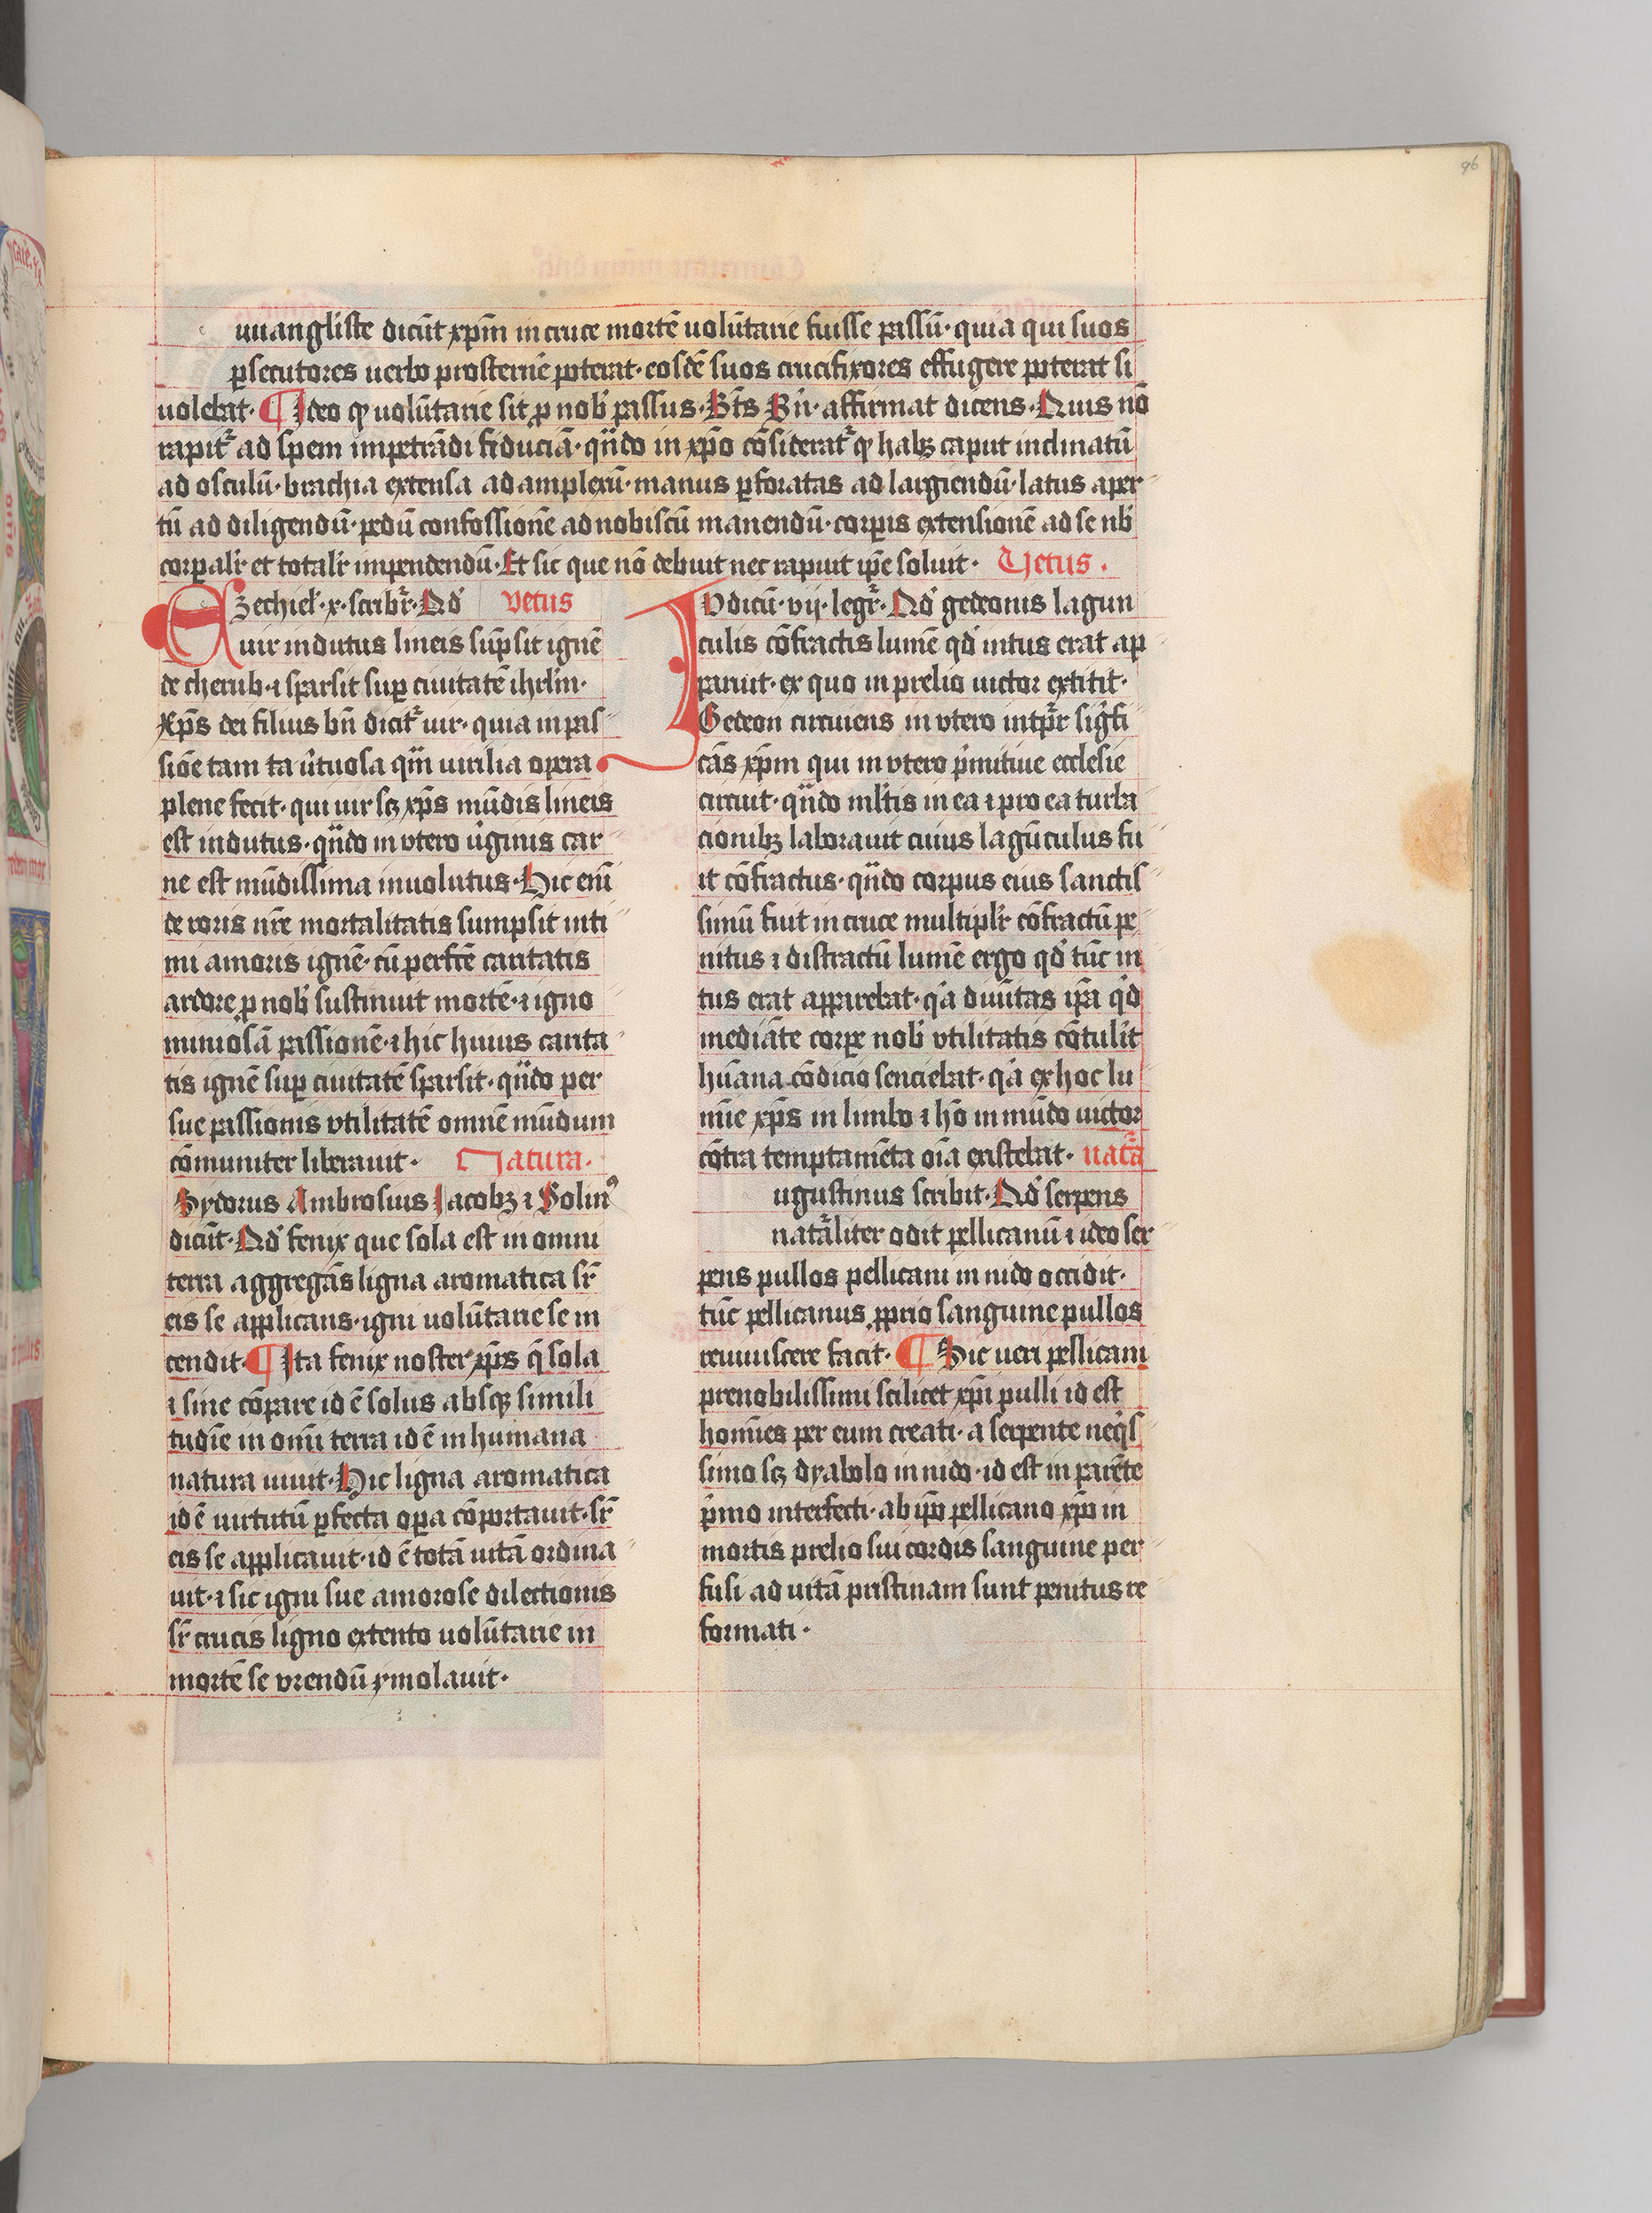 96
uuangl'iste dicūt xp̄m in cruce mortē uolūtarie fuisse passū · quia qui suos
ꝑsecutores uerbo prosternē poterat · eosdē suos crucifixores effugere poterat si
uolebat · ¶ Ideo ꝙ uolūtarie sit ꝓ nob' passus · Bt̄s Bn̄ · affirmat dicens · Quis nō
rapit᷑ ad spem impetrādi fiduciā · qn̄do in xp̄o cōsiderat᷑ ꝙ habꝫ caput inclinatū
ad osculū · brachia extensa ad amplexū · manus ꝑforatas ad largiendū · latus aper
tū ad diligendū · pedū confossionē ad nobiscū manendū · corꝑis extensionē ad se nb'
corꝑalr̄ et totalr̄ impendendū · Et sic que nō debuit nec rapuit ip̄e soluit · Vetus ·
Ezechiel' · x · scribr᷑ · Qd' vetus
uir indutus lineis sūpsit ignē
de cherub · ⁊ sparsit suꝑ ciuitatē ihrl'm ·
Xp̄s dei filius bn̄ dicit᷑ uir · quia in pas
siōe tam ta u'tuosa qm̄ uirilia opera
plene fecit · qui uir sꝫ xp̄s mūdis lineis
est indutus · qn̄do in vtero u'ginis car
ne est mūdissima inuolutus · Hic em̄
de roris nr̄e mortalitatis sumpsit inti
mi amoris ignē · cū perfcē caritatis
ardore ꝓ nob' sustinuit mortē · ⁊ igno
miniosā passionē · ⁊ hic huius carita
tis ignē suꝑ ciuitatē sparsit · qn̄do per
sue passionis vtilitatē omnē mūdum
cōmuniter liberauit · Natura ·
Hydorus Ambrosius Jacobꝫ ⁊ Solinꝰ
dicūt · Qd' fenix que sola est in omni
terra aggregās ligna aromatica sr̄
eis se applicans · igni uolūtarie se in
cendit · ¶ Ita fenix noster xp̄s q̄ sola
⁊ sine cōpare id ē solus absqꝫ simili
tudīe in omī terra id ē in humana
natura uiuit · Hic ligna aromatica
id ē uirtutū ꝑfecta oꝑa cōportauit · sr̄
eis se applicauit · id ē totā uitā ordina
uit · ⁊ sic igni sue amorose dilectionis
sr̄ crucis ligno extento uolūtarie in
mortē se vrendū ymolauit ·
Iudicū · vij · legr᷑ · Qd' gedeonis lagun
culis cōfractis lumē qd' intus erat ap
paruit · ex quo in prelio uictor extitit ·
Gedeon circuiens in vtero intꝑr᷑ siḡfi
cās xp̄m qui in vtero p̄mitiue ecclesie
circuit · qn̄do ml'tis in ea ⁊ pro ea turba
cionibꝫ laborauit cuius lagūculus fu
it cōfractus · qn̄do corpus eius sanctis
simū fuit in cruce multiplr̄ cōfractū pe
nitus ⁊ distractū lumē ergo qd' tūc in
tus erat apparebat · q'a diuītas ip̄a q'd
mediāte corꝑe nob' vtilitatis cōtulit
hūana cōdicio senciebat · q'a ex hoc lu
mīe xp̄s in limbo ⁊ hō in mūdo uictor
cōtra temptamēta oīa existebat · nat᷑a
ugustinus scribit · Qd' serpens
nat᷑aliter odit pellicanū ⁊ ideo ser
pens pullos pellicani in nido occidit ·
tūc pellicanus ꝓprio sanguine pullos
reuiuiscere facit · ¶ Sic ueri pellicani
prenobilissimi scilicet xp̄i pulli id est
homīes per eum creati · a serpente neq's
simo sꝫ dyabolo in nido · id est in parēte
p̄mo interfecti · ab ip̄o pellicano xp̄o in
mortis prelio sui cordis sanguine per
fusi ad uitā pristinam sunt penitus re
formati ·